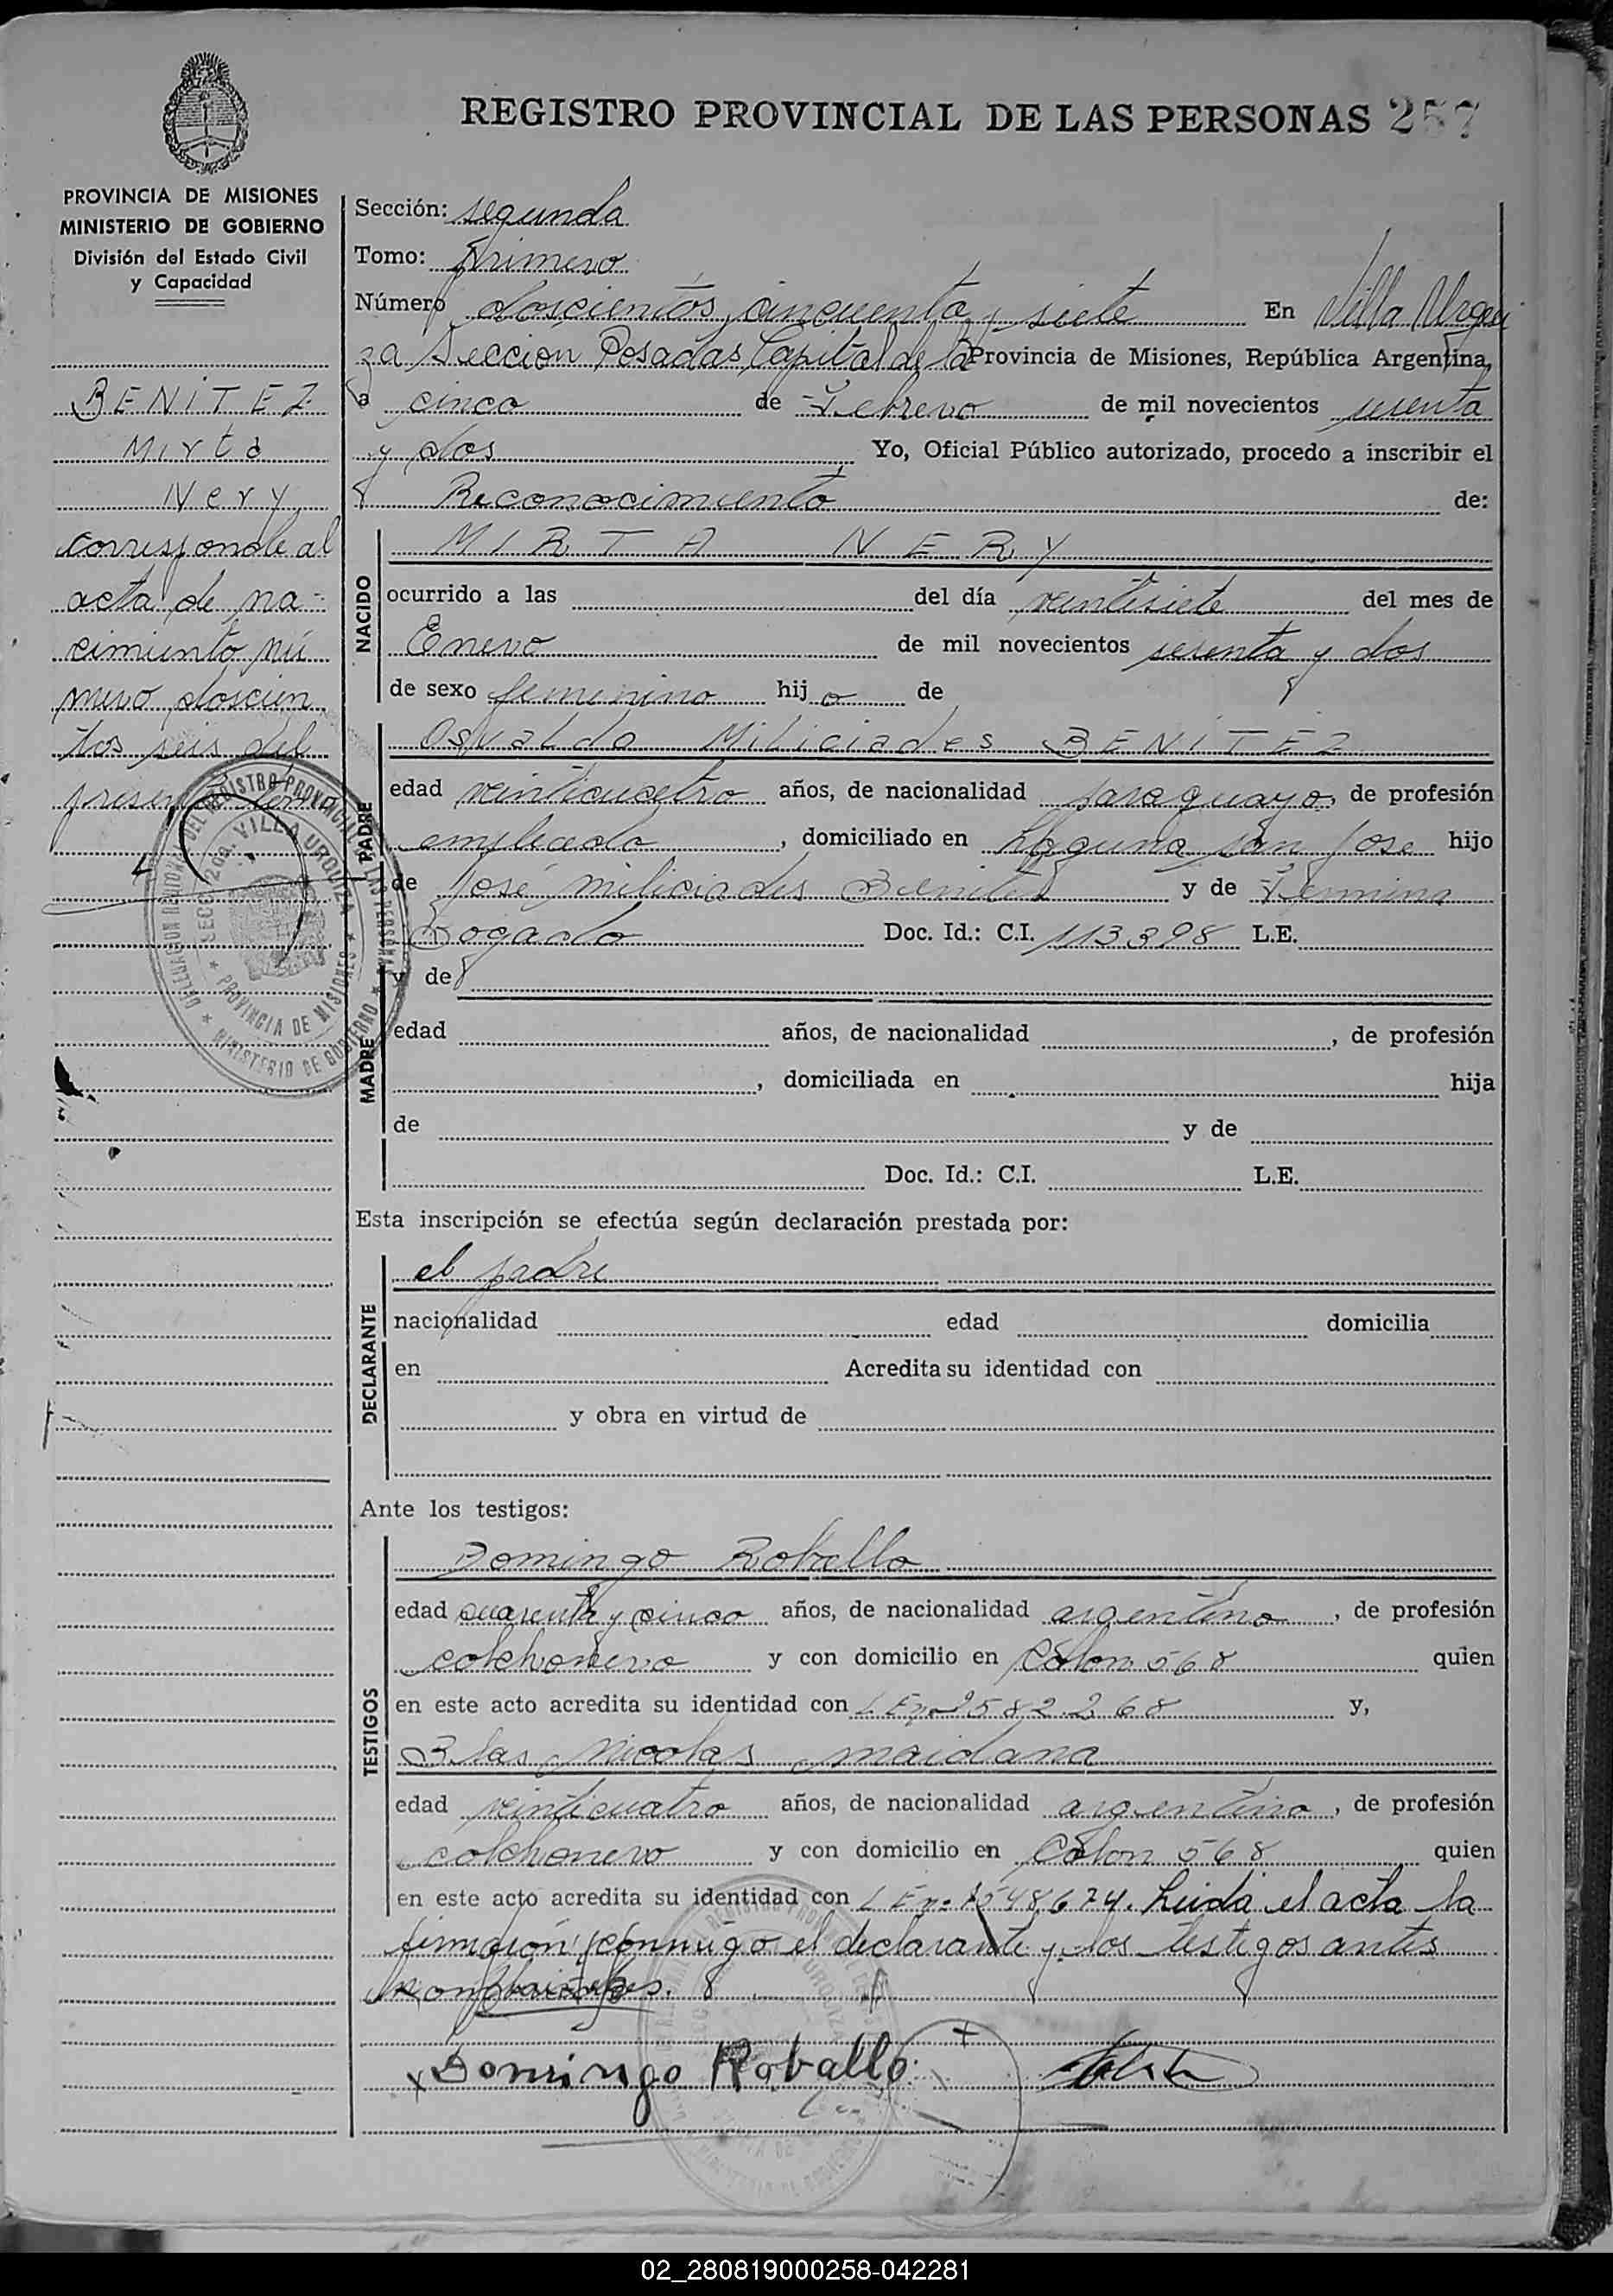 REGISTRO PROVINCIAL DE LAS PERSONAS 257
PROVINCIA DE MISIONES
MINISTERIO DE GOBIERNO
División del Estado Civil
y Capacidad
BENITEZ
Mirta
Nery
corresponde al
acta de na-
cimiento nú
mero doscien
tos seis del
presente tomo
Sección: segunda
Tomo: Primero
Número doscientos cincuenta y siete En Villa Urqui
za Seccion Posadas Capital de la Provincia de Misiones, República Argentina,
a cinco de Febrero de mil novecientos sesenta
y dos Yo, Oficial Público autorizado, procedo a inscribir el
Reconocimiento de:
NACIDO
MIRTA NERY
ocurrido a las del día veintisiete del mes de
Enero de mil novecientos sesenta y dos
de sexo femenino hij a de
PADRE
Osvaldo Milciades BENITEZ
edad veinticuatro años, de nacionalidad paraguayo, de profesión
empleado, domiciliado en Laguna San José hijo
de José milciades Benitez y de Fermina
Bogado Doc. Id.: C.I. 113398 L.E.
MADRE
y de
edad años, de nacionalidad , de profesión
, domiciliada en hija
de y de
Doc. Id.: C.I. L.E.
Esta inscripción se efectúa según declaración prestada por:
DECLARANTE
el padre
nacionalidad edad domicilia
en Acredita su identidad con
y obra en virtud de
Ante los testigos:
TESTIGOS
Domingo Roballo
edad cuarenta y cinco años, de nacionalidad argentino, de profesión
colchonero y con domicilio en Colon 568 quien
en este acto acredita su identidad con L En° 2582268 y,
Blas Nicolas maidana
edad veinticuatro años, de nacionalidad argentino, de profesión
colchonero y con domicilio en Colon 568 quien
en este acto acredita su identidad con L En° 7548674. Leida el acta la
firmaron conmigo el declarante y los testigos antes
nombrados.
x Domingo Roballo
DELEGACION REGIONAL DEL REGISTRO PROVINCIAL DE LAS PERSONAS
SECC. 2da. VILLA URQUIZA
PROVINCIA DE MISIONES
MINISTERIO DE GOBIERNO
02_280819000258-042281